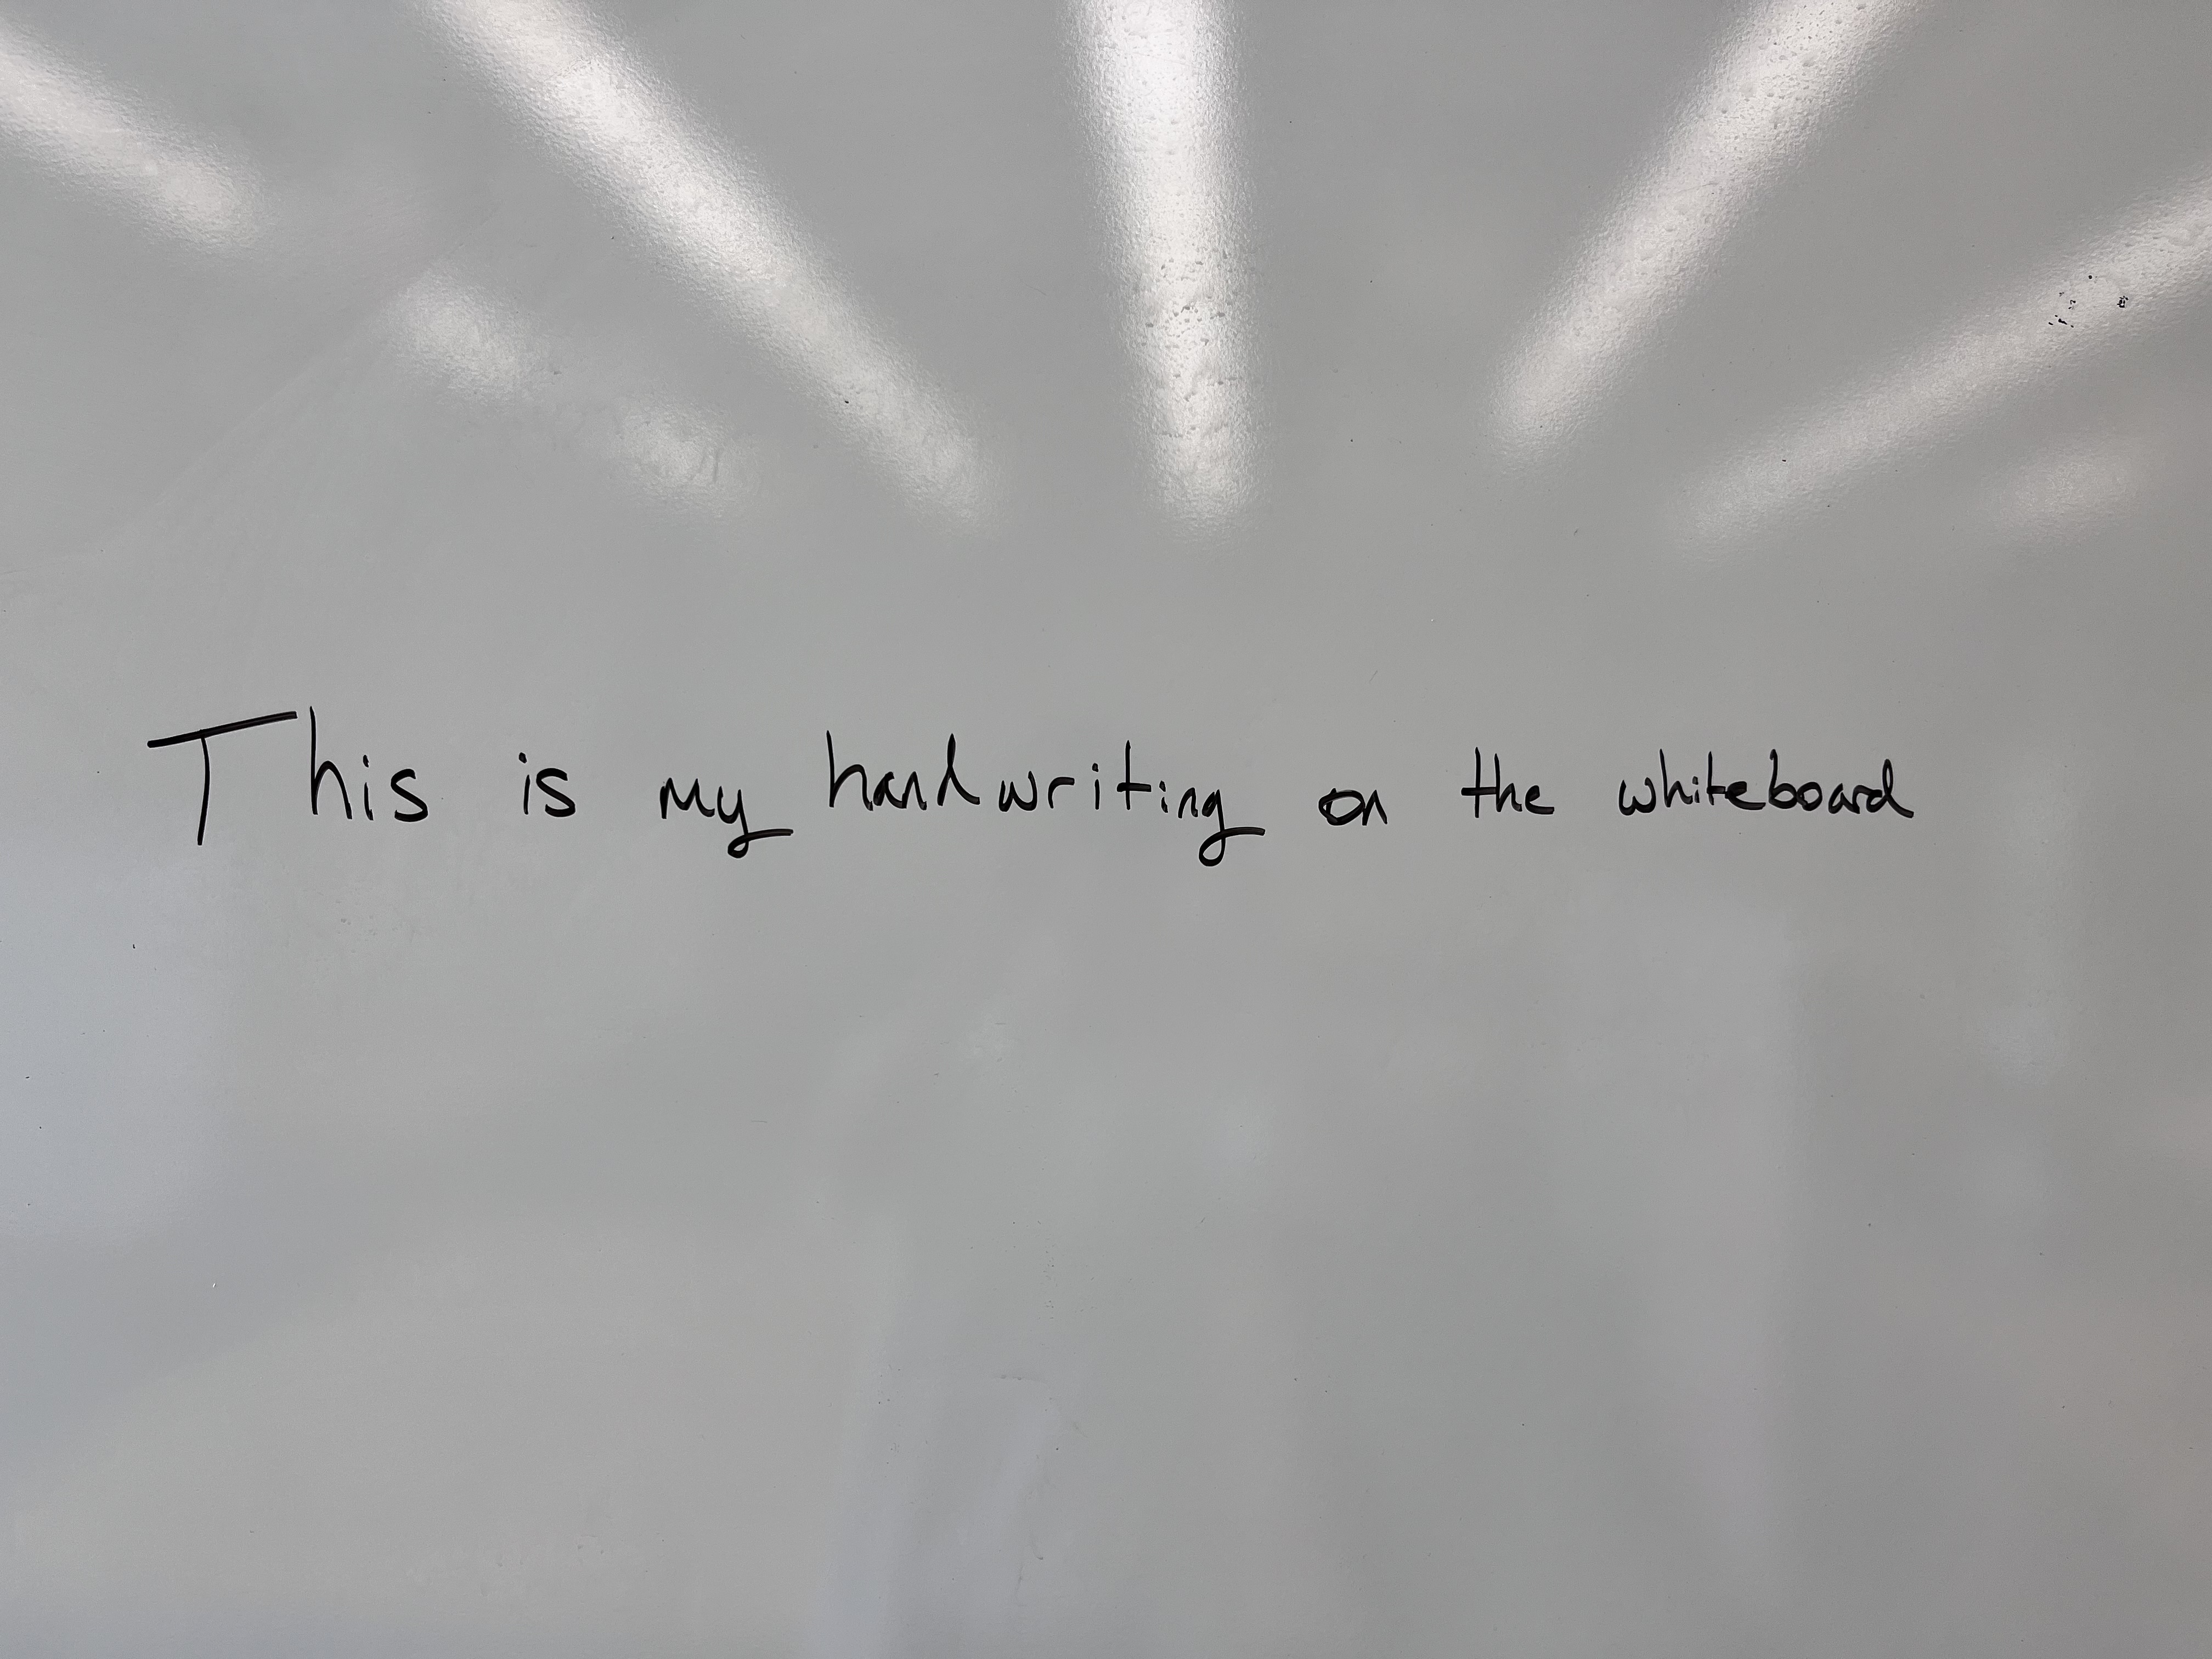 This is my handwriting on the whiteboard